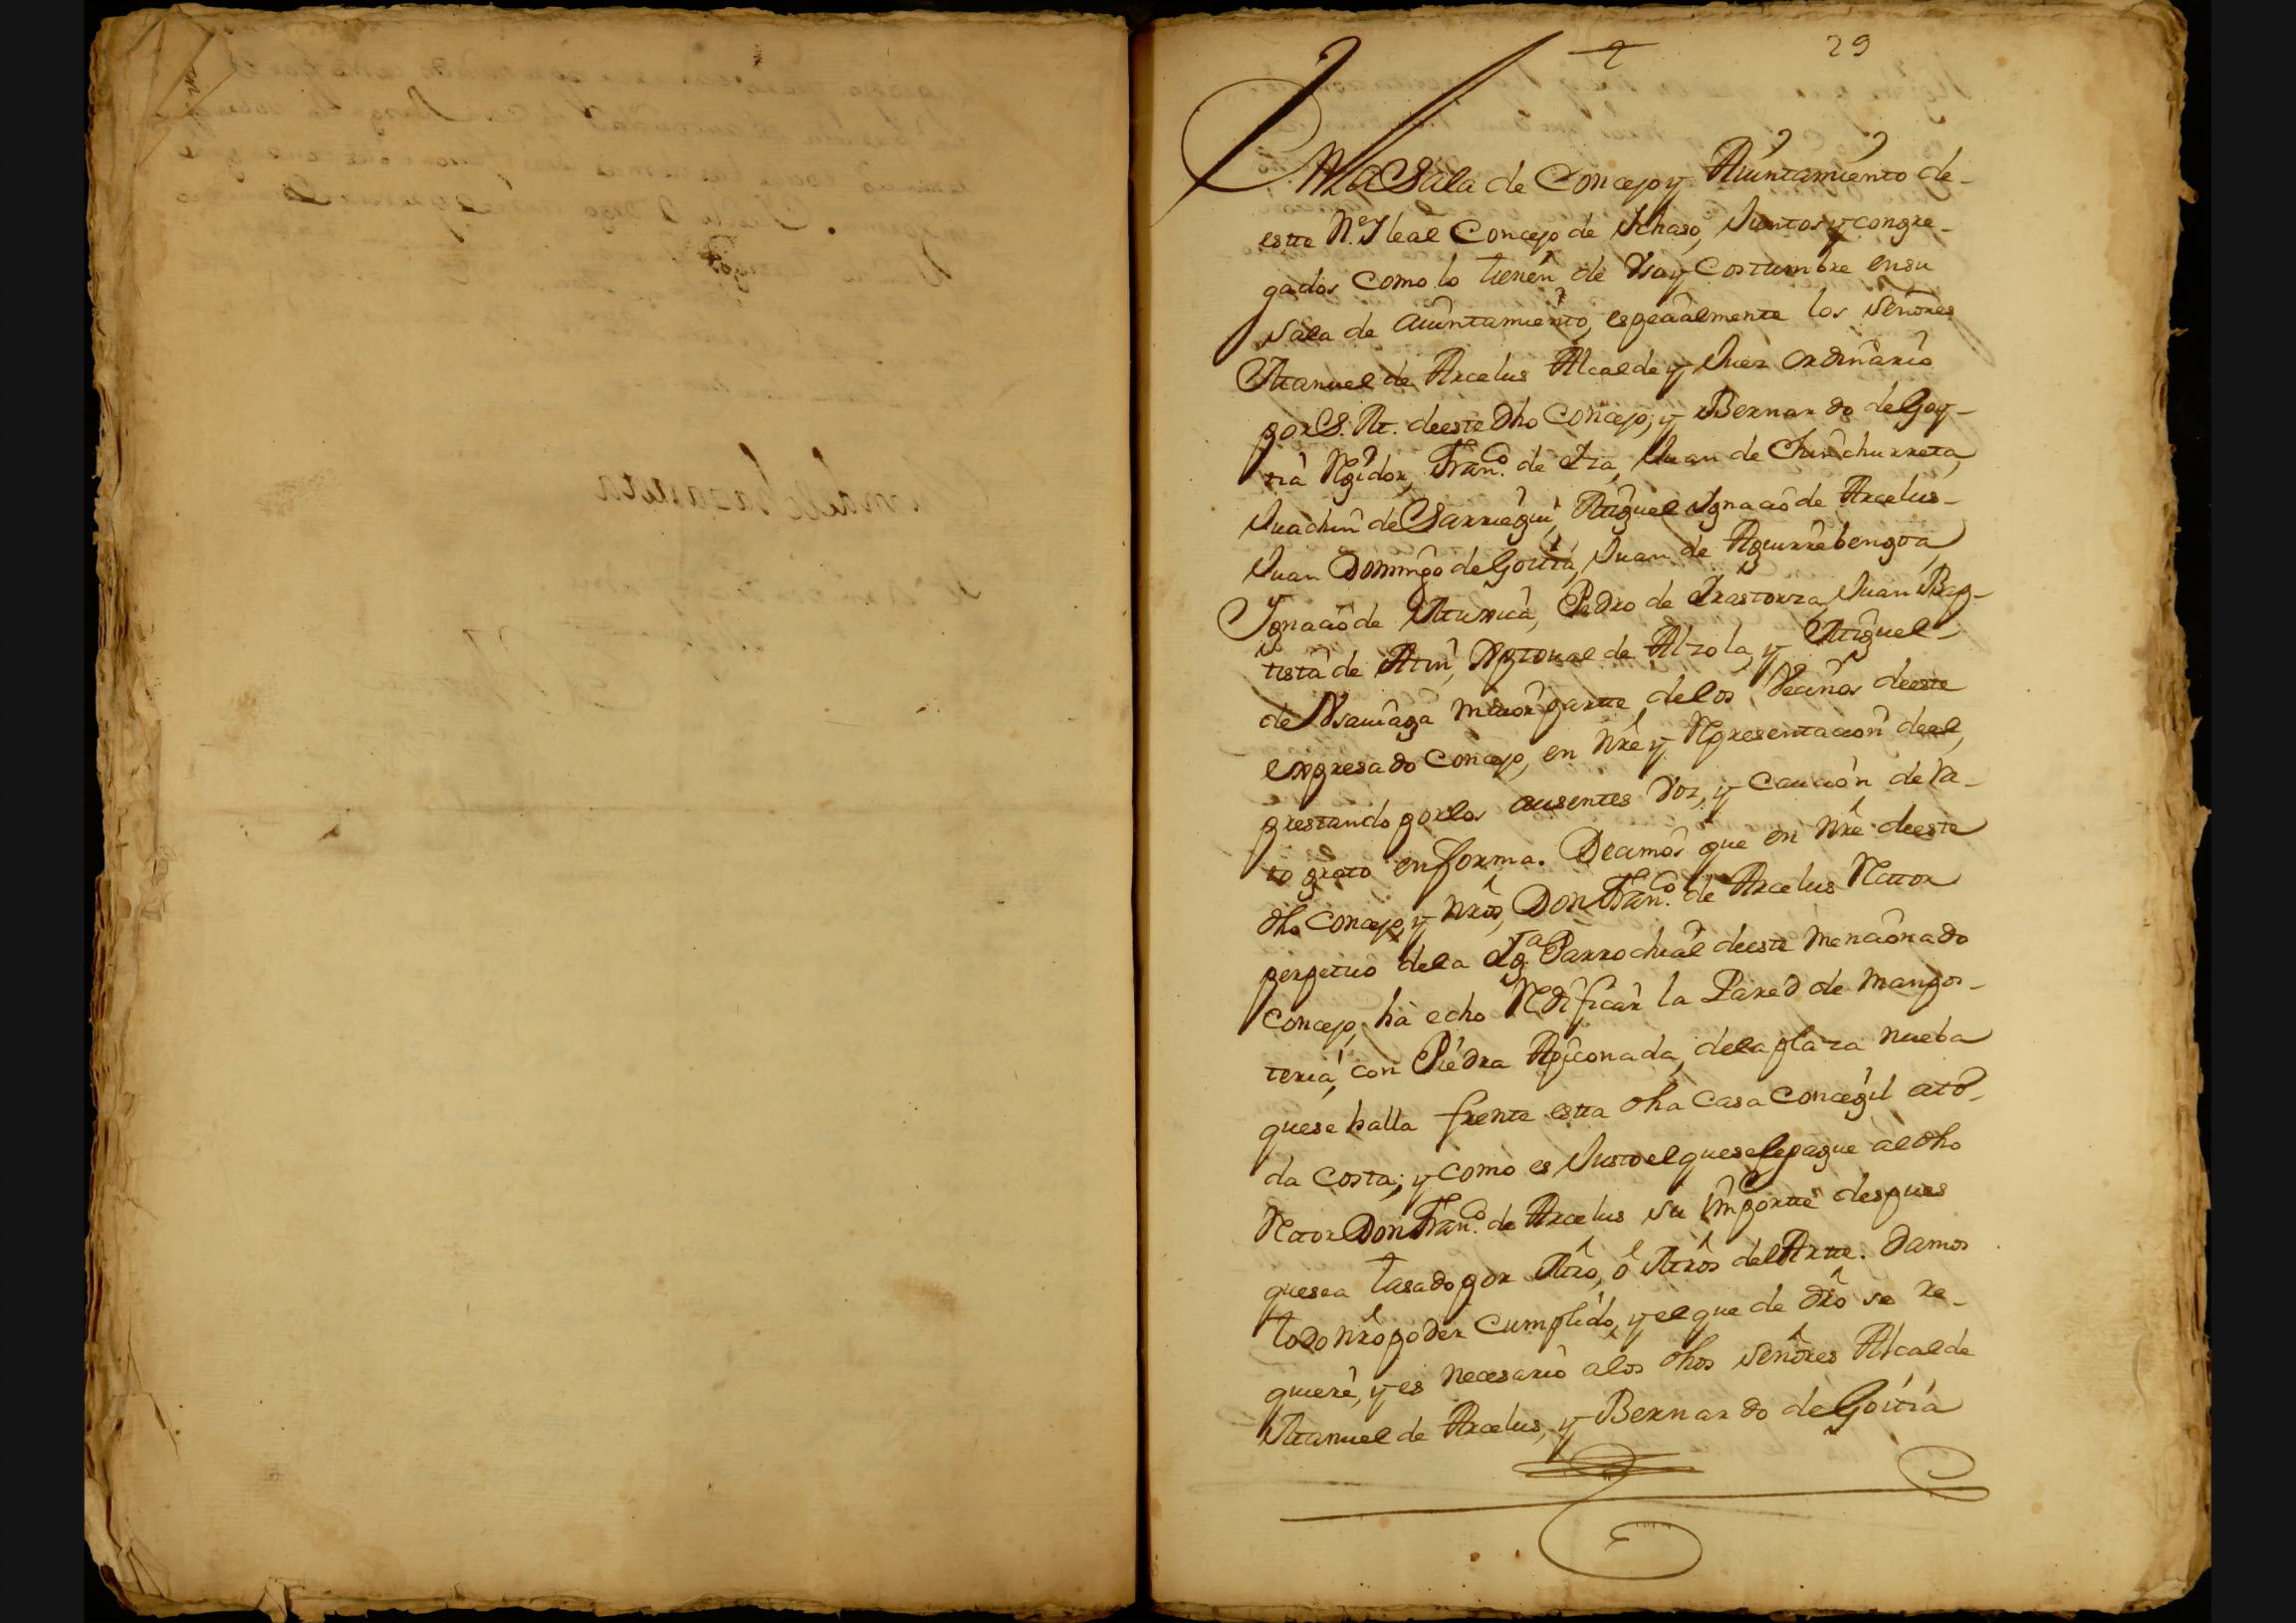 29
En la Sala de Concejo y Aiuntamiento de-
este N. Y leal Concejo de Ichaso, Juntos y congre-
gados como lo tienen de Vso y Costumbre en su
sala de aiuntamiento, espeçialmente los señores
Manuel de Arcelus Alcalde y Juez ordinario
por S. M. de este dho Concejo, y Bernardo de Goy-
tia Rejidor, Franco. de Juan de Chinchurreta,
Juachin de Sarriegui, Miguel Ignacio de Arcelus-
Juan Domingo de Goitia, Juan de Aguirrebengoa,
Ygnacio de Pedro de Irastorza, Juan Bap-
tista de de Alzola, y Miguel-
de maior partte de los Vecinos de este
expresado Concejo, en nre y Representacion de el,
prestando por los ausentes Voz, y Caucion de ra-
to grato en forma. Decimos que en nre de este
dho Concejo, y nros, Don Franco. de Arcelus Rector
perpetuo de la Iga. Parrochial de este mencionado
Concejo, ha echo Redificar la Pared de mampos-
teria, con Piedra Apiconada, de la plaza nueba
que se halla frente esta dha Casa Concegil a to-
da costa; y como es Justo el que se le pague al dho
Rector Don Franco. de Arcelus su importte despues
que sea tasado por Mro, ô Mros del Artte. Damos
todo nro poder cumplido, y el que de dro se re-
quiere, y es necesario a los dhos señores Alcalde
Manuel de Arcelus, y Bernardo de Goitia